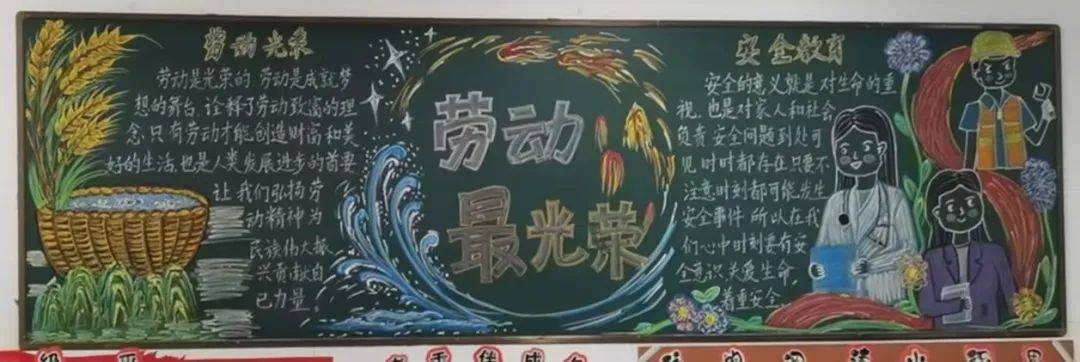 劳动光荣
劳动是光荣的 劳动是成就梦
想的舞台 诠释了劳动致富的理
念,只有劳动才能创造财富和美
好的生活,也是人类发展进步的首要
让我们弘扬劳
动精神为
民族伟大振
兴贡献自
己力量!
劳动
最光荣
安全教育
安全的意义就是对生命的重
视,也是对家人和社会
负责 安全问题到处可
见,时时都存在只要不
注意,时刻都可能发生
安全事件 所以在我
们心中时刻要有安
全意识 关爱生命,
着重安全